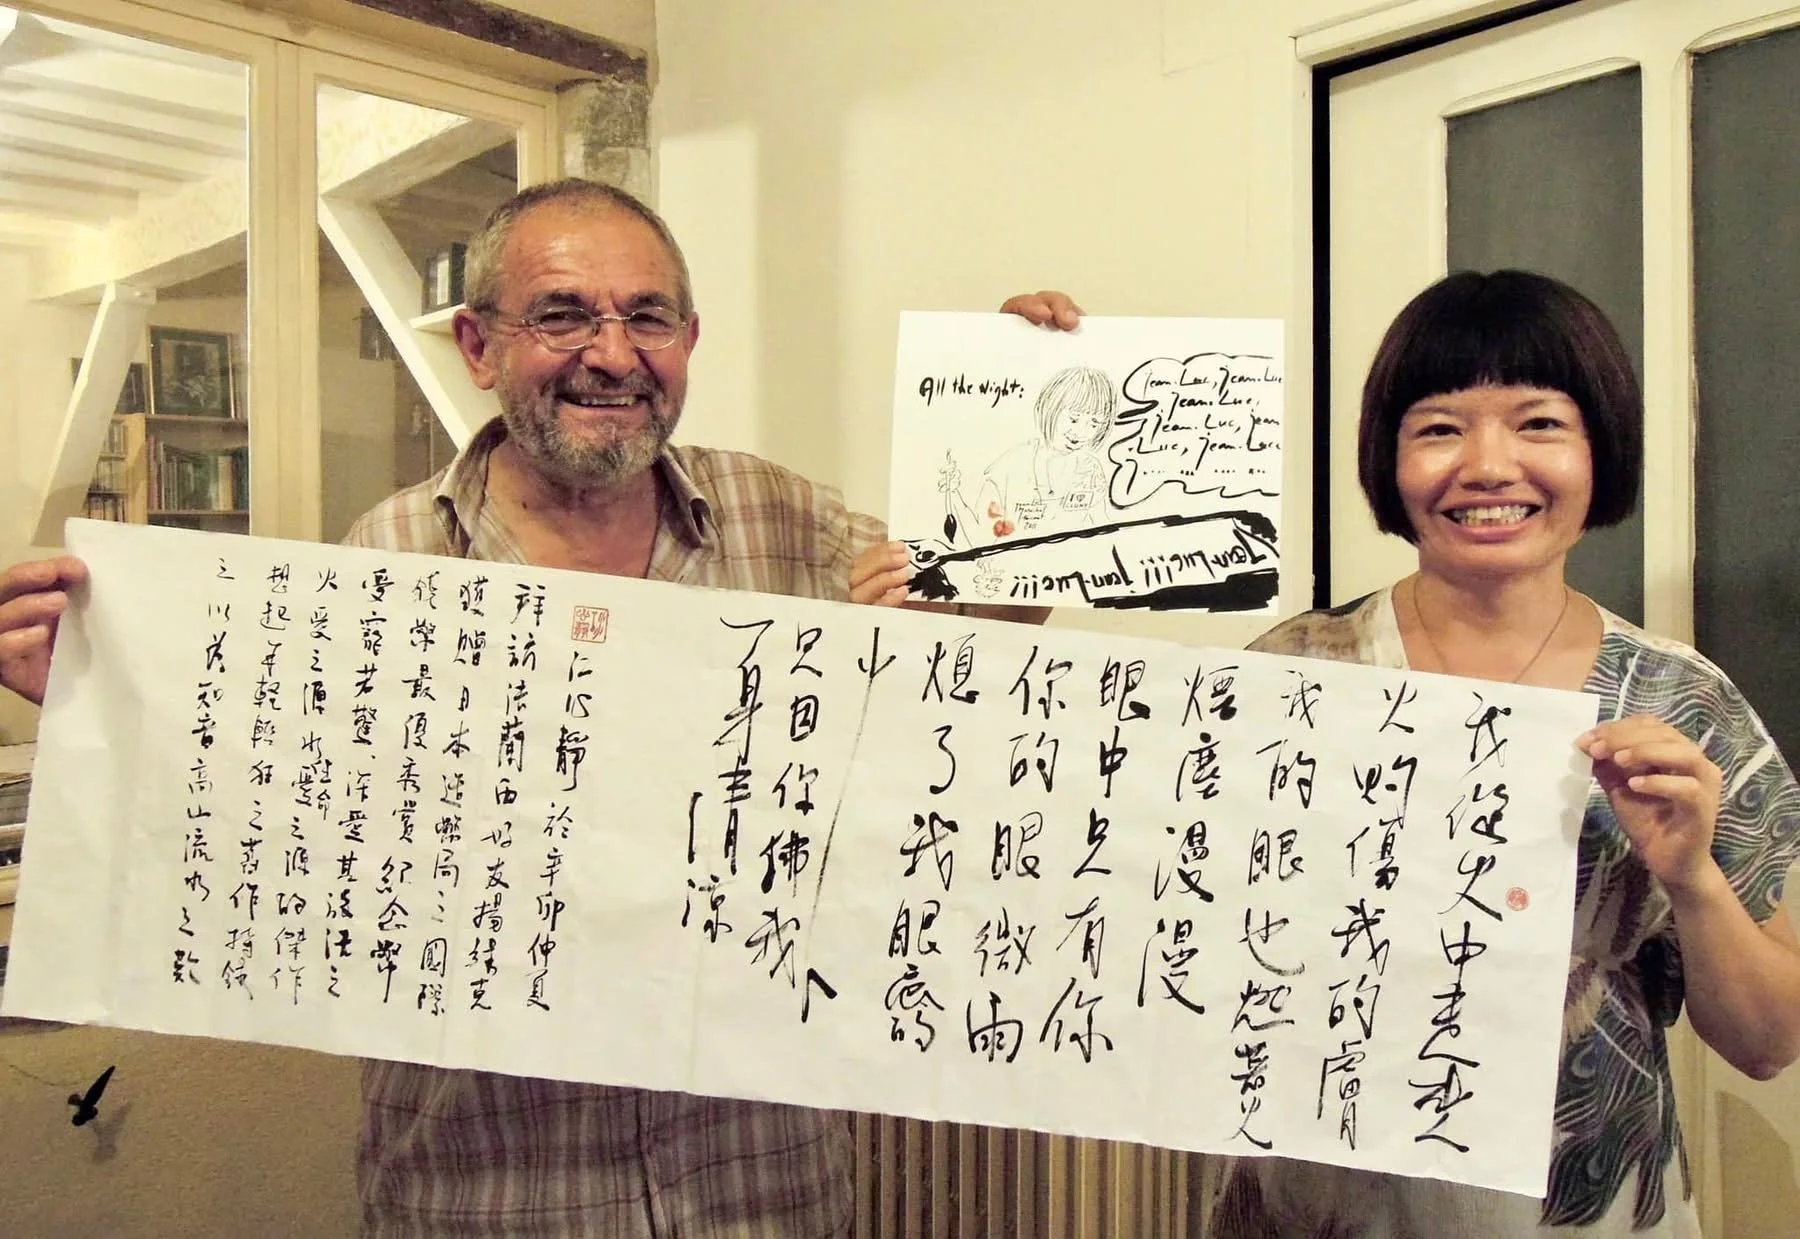 All the Night:
Jean.Luc, Jean.Luc
Jean.Luc,
Jean.Luc, Jean
Luc, Jean.Luc
I ❤
2011
Jean-Luc!!! Jean-Luc!!!
我從火中走來
火灼傷我的膚
我的眼也燃著火
煙塵漫漫
眼中只有你
你的眼微雨
熄了我眼底的
火
只因你拂我
一身清涼
仁心靜於辛卯仲夏
拜訪法蘭西好友揚結克
獲贈日本造幣局之國際
錢幣最優秀賞紀念幣
受寵若驚、深愛其
火愛之源水生命愛之源的傑作
想起年輕輕狂之舊作
之以為知音高山流水之歎